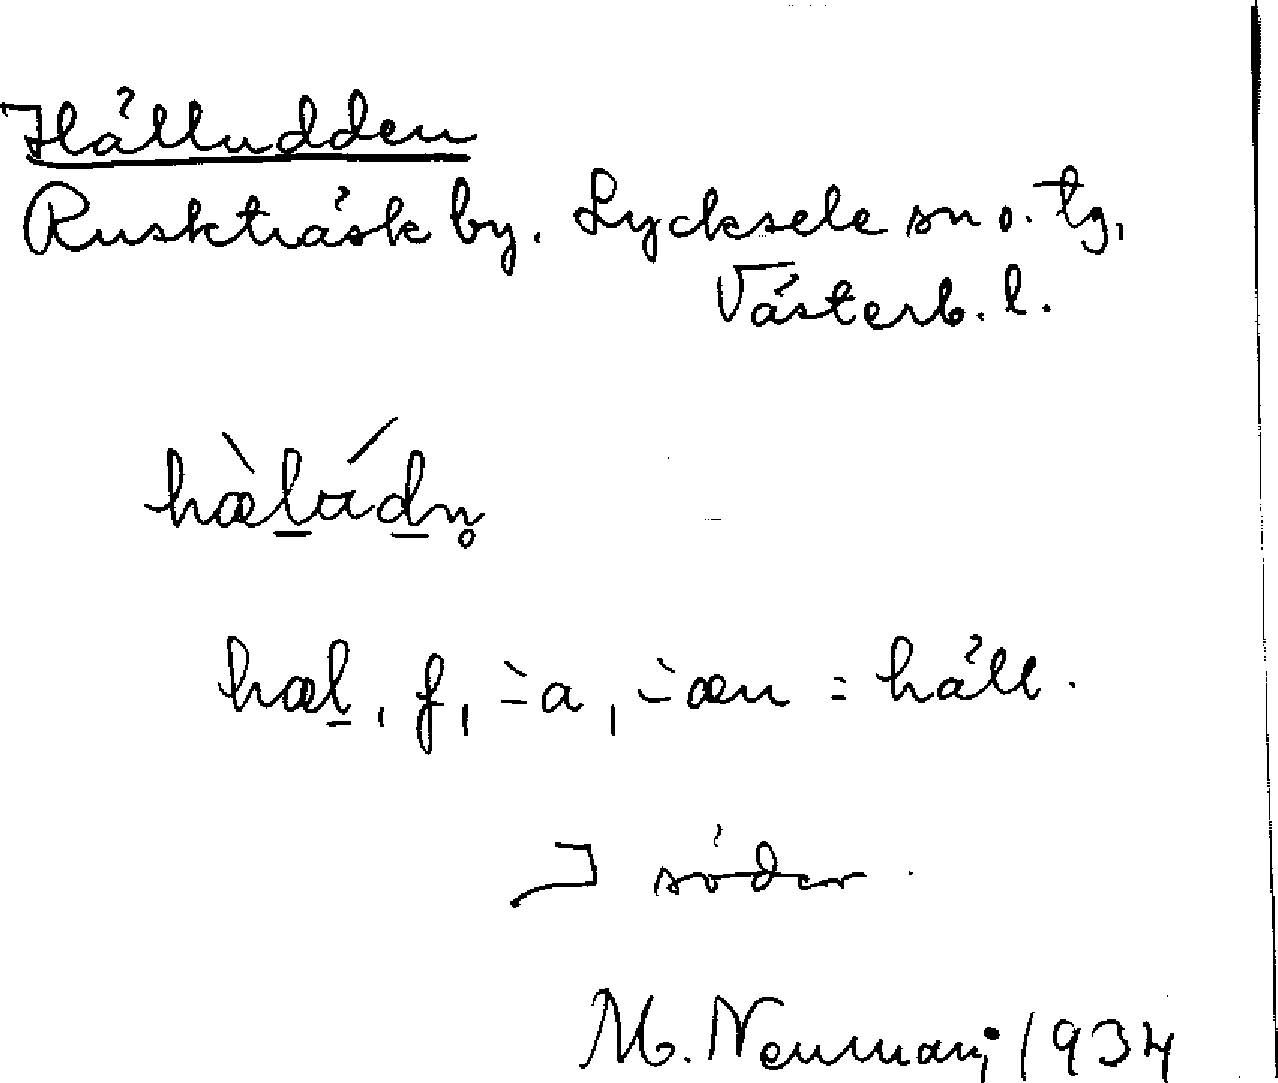 Hälludden
Ruskträsk by. Lycksele sn o. tg,
Västerb. l.
hæ̀lúdn̥
hæl, f, -̀a, -̀æn = häll.
söder
M. Neuman, 1934